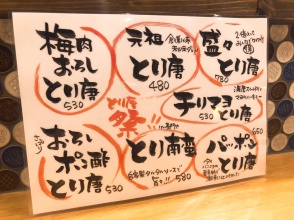 梅肉
おろし
とり唐
530
元祖
とり唐
480
盛々
とり唐
780
チリマヨ
とり唐
650
とり唐
祭
おろし
ポン酢
とり唐
530
とり南蛮
580
パッポン
とり唐